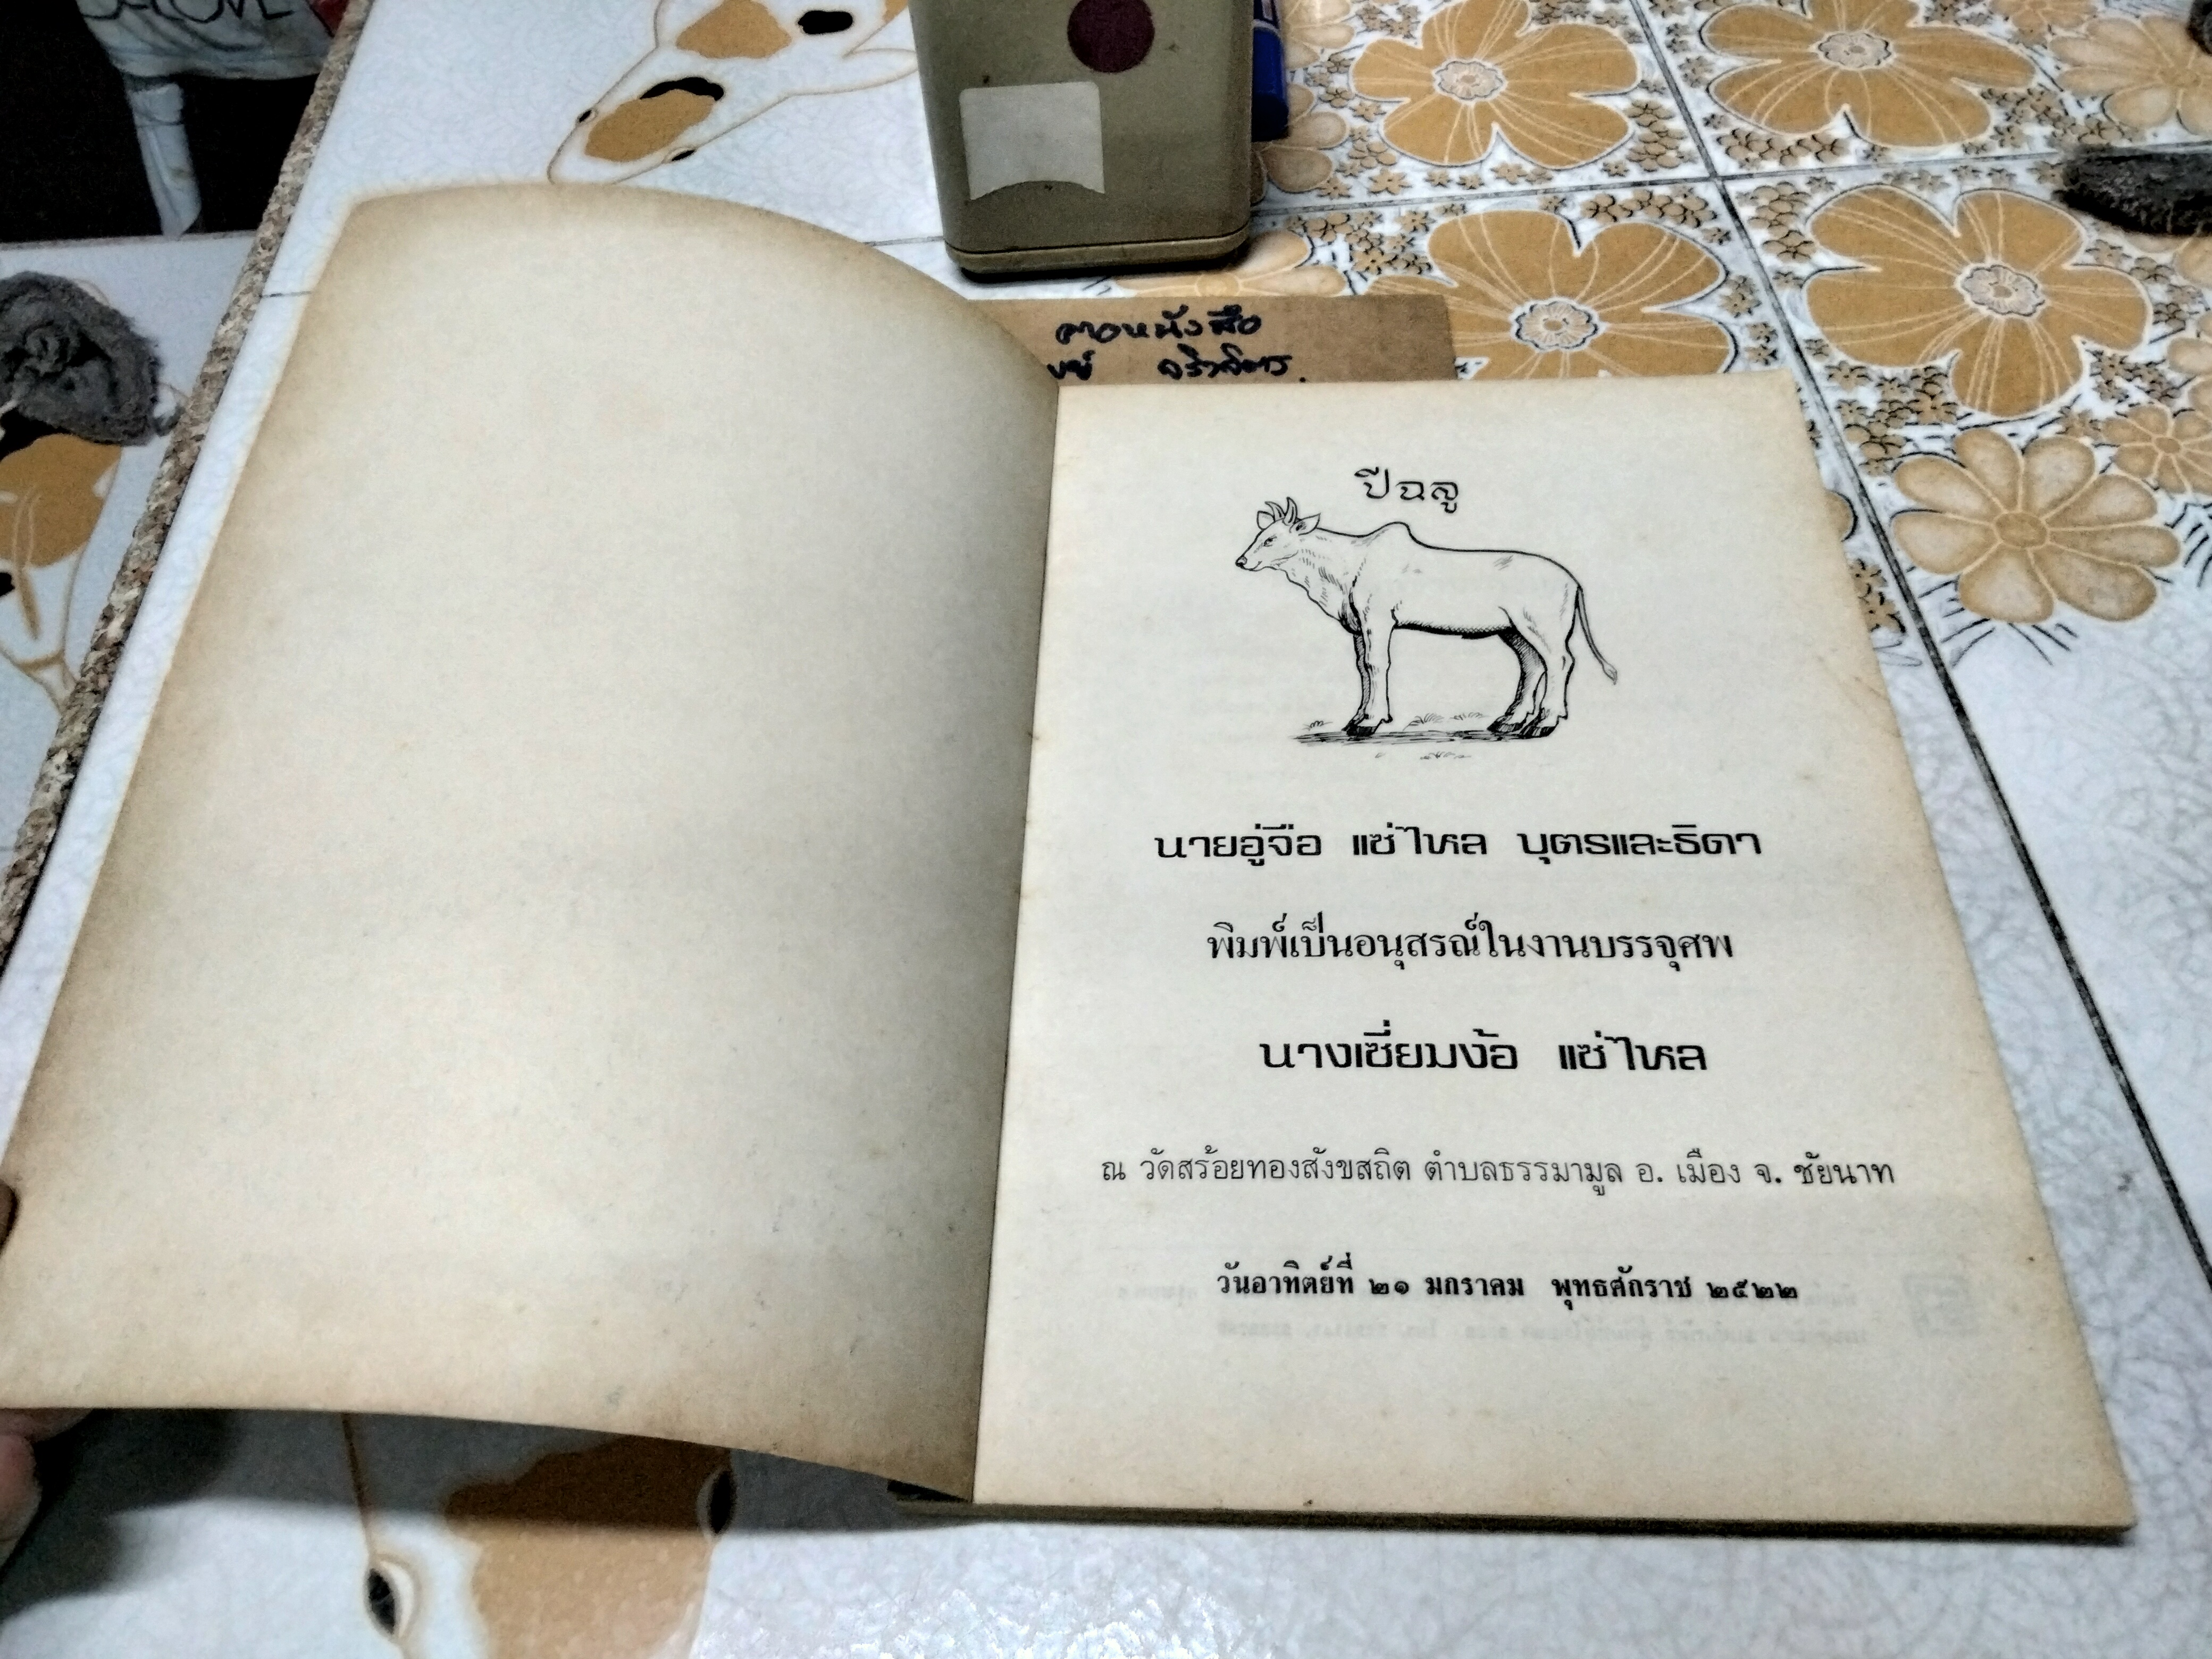 ปีฉลู
นายอู่จือ แซ่ไหล บุตรและธิดา
พิมพ์เป็นอนุสรณ์ในงานบรรจุศพ
นางเซี่ยมง้อ แซ่ไหล
ณ วัดสร้อยทองสังขสถิต ตำบลธรรมามูล อ. เมือง จ. ชัยนาท
วันอาทิตย์ที่ ๒๑ มกราคม พุทธศักราช ๒๕๒๒